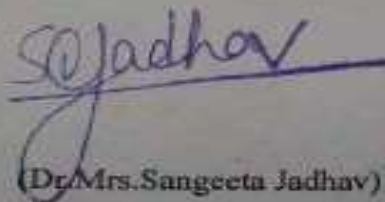 SJadhav
(Dr.Mrs.Sangeeta Jadhav)